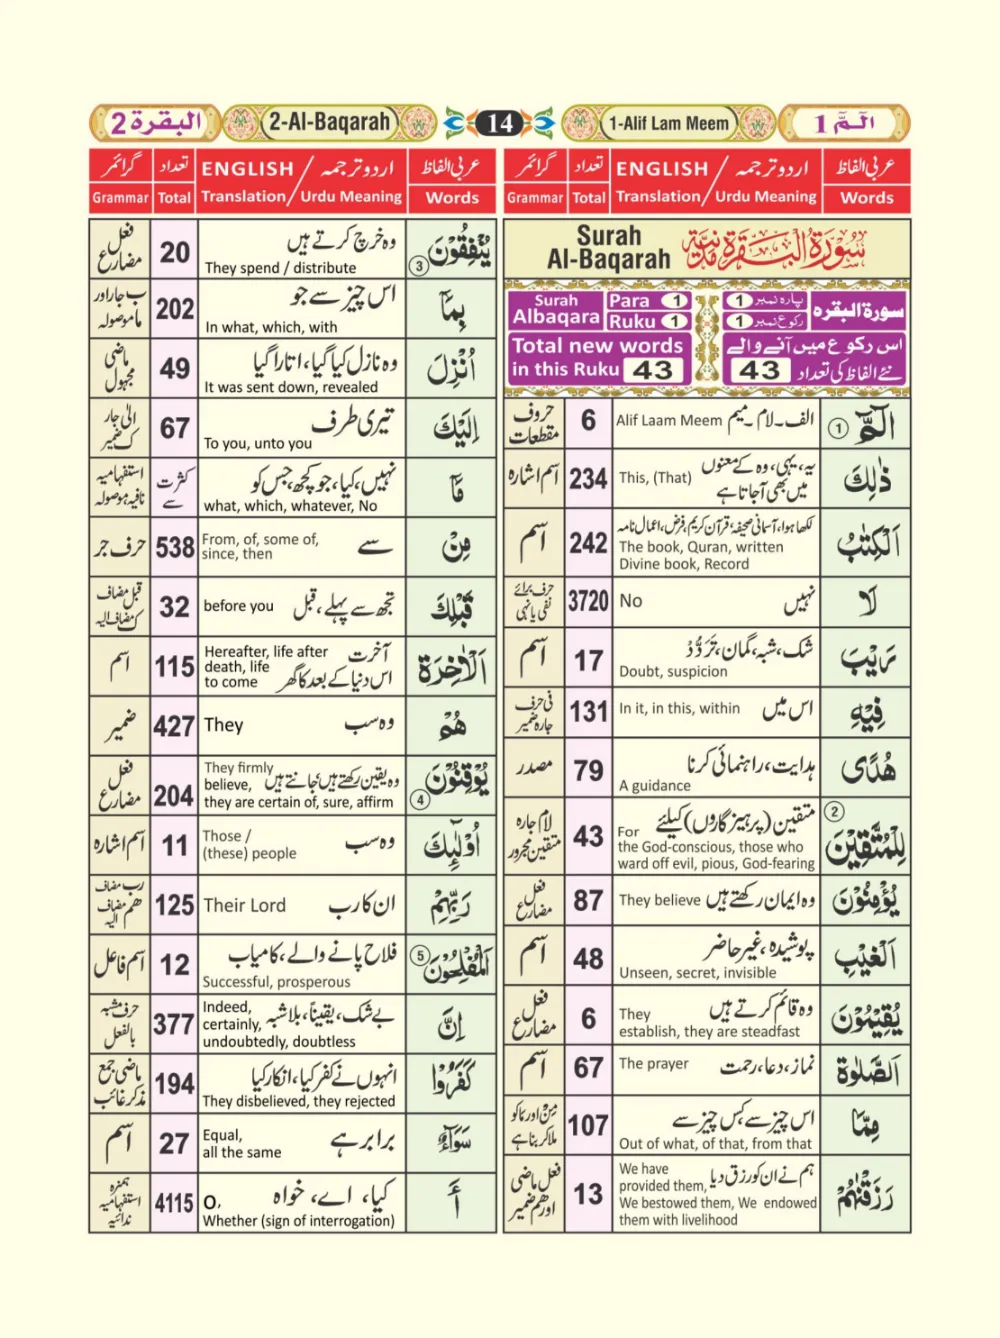 البقرة 2
2-Al-Baqarah
14
1-Alif Lam Meem
الٓمّٓ 1
عربی الفاظ
اردو ترجمہ / ENGLISH
تعداد
گرائمر
Words
Translation / Urdu Meaning
Total
Grammar
Surah
Al-Baqarah
سُوْرَةُ الْبَقَرَةِ مَدَنِيَّةٌ
Surah
Albaqara
Para 1
Ruku 1
پارہ نمبر 1
رکوع نمبر 1
سورة البقرہ
Total new words
in this Ruku 43
اس رکوع میں آنے والے
نئے الفاظ کی تعداد 43
الٓمّٓ ①
الف۔لام۔میم
Alif Laam Meem
6
حروف
مقطعات
ذٰلِكَ
یہ، یہی، وہ کے معنوں
میں بھی آجاتا ہے
This, (That)
234
اسم اشارہ
اَلْكِتٰبُ
لکھا ہوا، آسمانی صحیفہ، قرآن کریم، فرض، اعمال نامہ
The book, Quran, written
Divine book, Record
242
اسم
لَا
نہیں
No
3720
حرف برائے
نفی یا نہی
رَيْبَ
شک، شبہ، گمان، تَرَدُّدْ
Doubt, suspicion
17
اسم
فِيْهِ
اس میں
In it, in this, within
131
فی حرف
جارہ ضمیر
هُدًى
ہدایت، راہنمائی کرنا
A guidance
79
مصدر
لِلْمُتَّقِيْنَ ②
متقین (پرہیز گاروں) کیلئے
For
the God-conscious, those who
ward off evil, pious, God-fearing
43
لام جارہ
متقین مجرور
يُؤْمِنُوْنَ
وہ ایمان رکھتے ہیں
They believe
87
فعل
مضارع
الْغَيْبِ
پوشیدہ، غیر حاضر
Unseen, secret, invisible
48
اسم
يُقِيْمُوْنَ
وہ قائم کرتے ہیں
They
establish, they are steadfast
6
فعل
مضارع
الصَّلٰوةَ
نماز، دعا، رحمت
The prayer
67
اسم
مِمَّا
اس چیز سے کس چیز سے
Out of what, of that, from that
107
مِنْ اور مَا کو
ملا کر بنا ہے
رَزَقْنٰهُمْ
ہم نے ان کو رزق دیا
We have
provided them,
We bestowed them, We endowed
them with livelihood
13
فعل ماضی
اور ھم ضمیر
عربی الفاظ
اردو ترجمہ / ENGLISH
تعداد
گرائمر
Words
Translation / Urdu Meaning
Total
Grammar
يُنْفِقُوْنَ ③
وہ خرچ کرتے ہیں
They spend / distribute
20
فعل
مضارع
بِمَآ
اس چیز سے جو
In what, which, with
202
ب جار اور
ما موصولہ
اُنْزِلَ
وہ نازل کیا گیا، اتارا گیا
It was sent down, revealed
49
ماضی
مجہول
اِلَيْكَ
تیری طرف
To you, unto you
67
الیٰ جار
ک ضمیر
مَآ
نہیں، کیا، جو کچھ، جس کو
what, which, whatever, No
کثرت
سے
استفہامیہ
نافیہ موصولہ
مِنْ
سے
From, of, some of,
since, then
538
حرف جر
قَبْلِكَ
تجھ سے پہلے، قبل
before you
32
قبل مضاف
ک مضاف الیہ
اَلْاٰخِرَةِ
آخرت
اس دنیا کے بعد کا گھر
Hereafter, life after
death, life
to come
115
اسم
هُمْ
وہ سب
They
427
ضمیر
يُوْقِنُوْنَ ④
وہ یقین رکھتے ہیں، جانتے ہیں
They firmly
believe,
they are certain of, sure, affirm
204
فعل
مضارع
اُولٰٓئِكَ
وہ سب
Those /
(these) people
11
اسم اشارہ
رَبِّهِمْ
ان کا رب
Their Lord
125
رب مضاف
ھم مضاف
الیہ
الْمُفْلِحُوْنَ ⑤
فلاح پانے والے، کامیاب
Successful, prosperous
12
اسم فاعل
اِنَّ
بے شک، یقیناً، بلاشبہ
Indeed,
certainly,
undoubtedly, doubtless
377
حرف مشبہ
بالفعل
كَفَرُوْا
انہوں نے کفر کیا، انکار کیا
They disbelieved, they rejected
194
ماضی جمع
مذکر غائب
سَوَآءٌ
برابر ہے
Equal,
all the same
27
اسم
أَ
کیا، اے، خواہ
O,
Whether (sign of interrogation)
4115
ہمزہ
استفہامیہ
ندائیہ